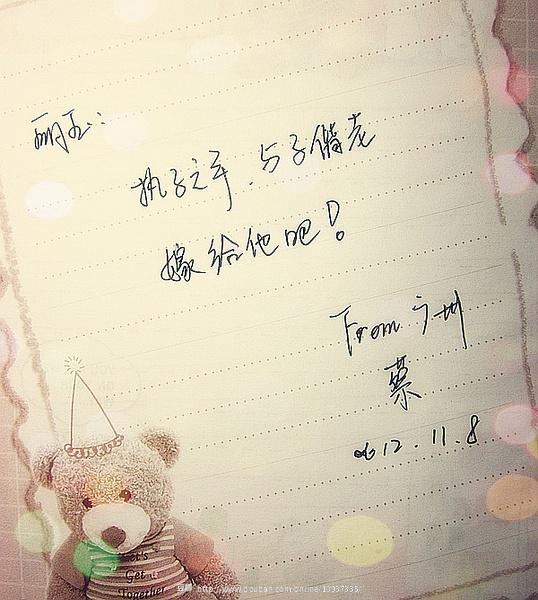 丽玉：
执子之手，与子偕老
嫁给他吧！
From 广州
蔡
2012.11.8
Let's
Get
Together
豆瓣 http://www.douban.com/online/10937335/